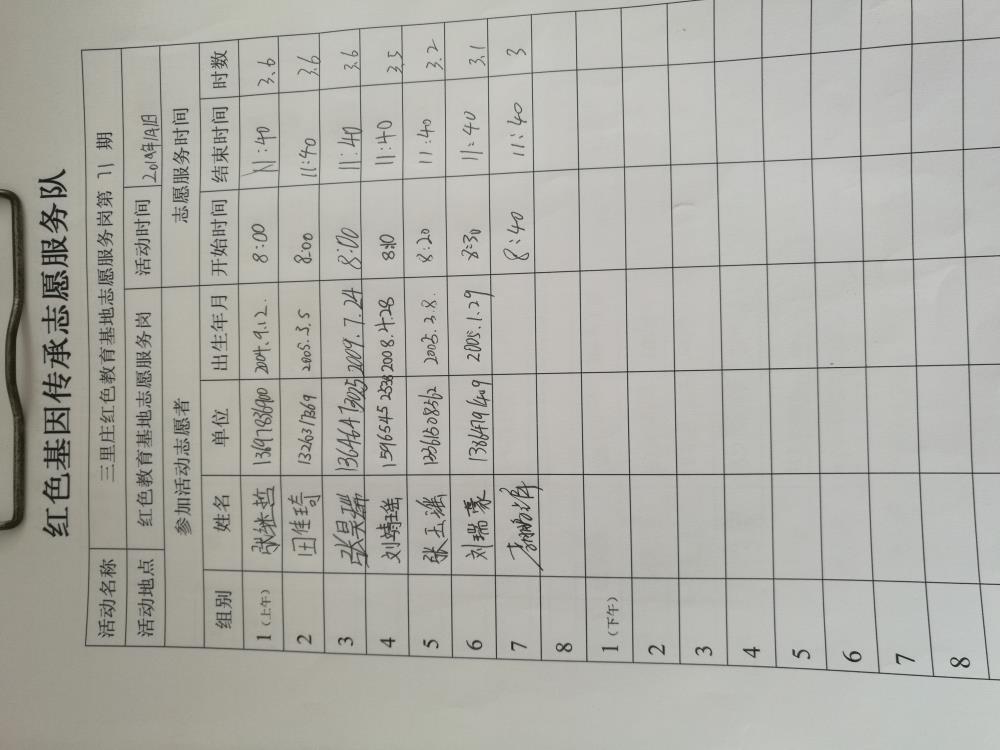 红色基因传承志愿服务队
活动名称 三里庄红色教育基地志愿服务岗第 11 期
活动地点 红色教育基地志愿服务岗 活动时间
参加活动志愿者 志愿服务时间
组别 姓名 单位 出生年月 开始时间 结束时间 时数
1（上午） 张继哲 13697836900 2004.9.12. 8:00 11:40 3.6
2 田佳琦 1326317369 2005.3.5 8:00 11:40 3.6
3 张昊瑞 13646473025 2009.7.24 8:00 11:40 3.6
4 刘靖瑶 15965452538 2008.4.28 8:10 11:40 3.5
5 张玉瑶 13361508562 2005.3.8. 8:20 11:40 3.2
6 刘瑞豪 13864791409 2005.1.29 8:30 11:40 3.1
7 8:40 11:40 3
8
1（下午）
2
3
4
5
6
7
8